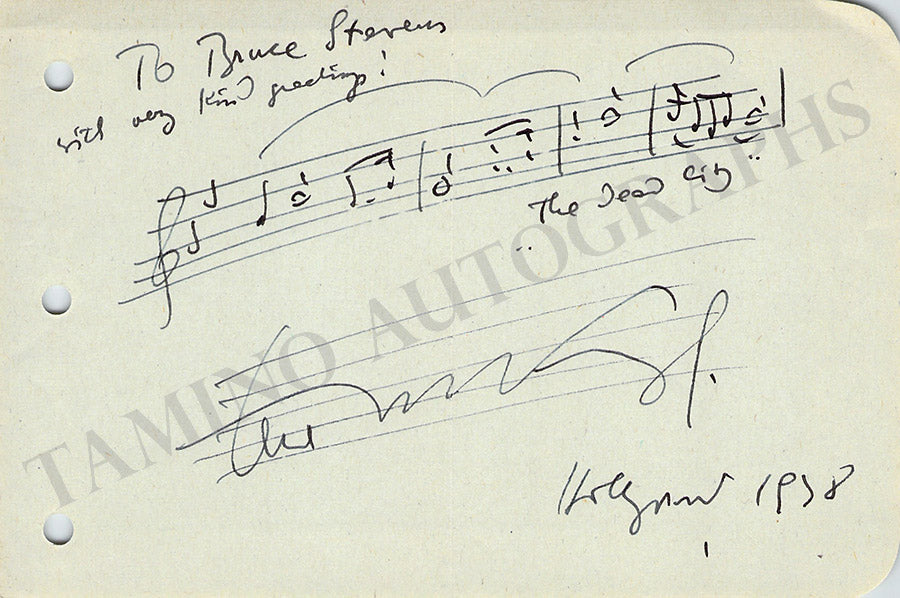 To Bruce Stevens
with very kind greetings!
"The Dead City"
Hollywood 1938
TAMINO AUTOGRAPHS